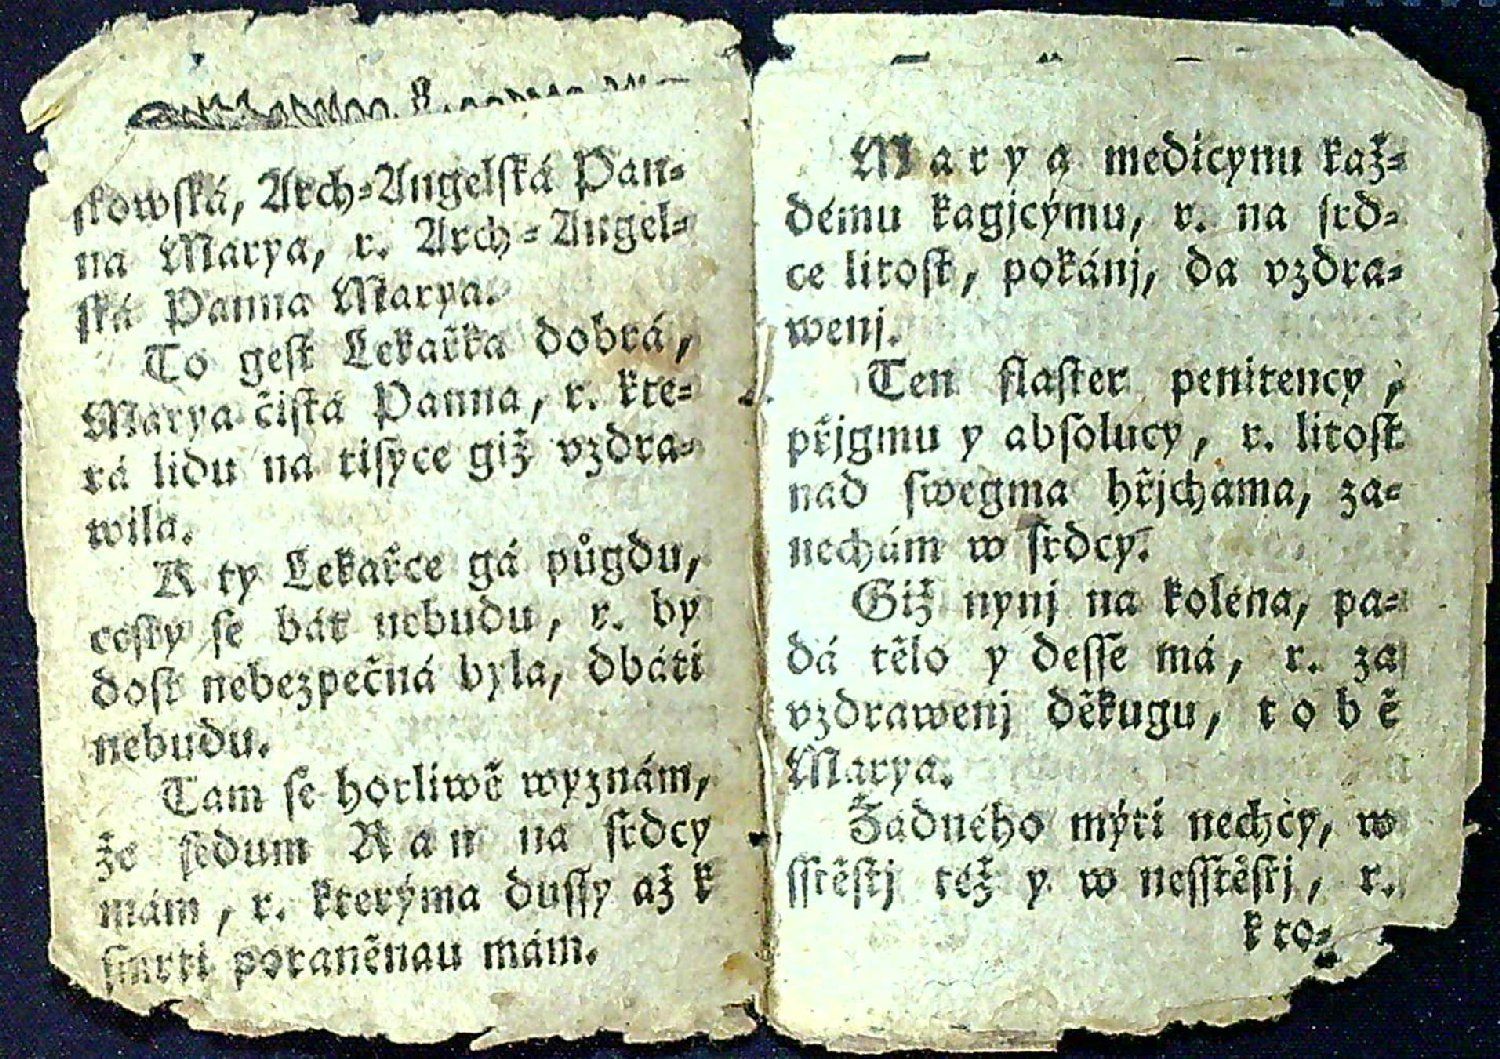 skowská, Arch-Angelská Pan-
na Marya, r. Arch-Angel-
ská Panna Marya.
To gest Lekařka dobrá,
Marya čistá Panna, r. kte-
rá lidu na tisyce giž vzdra-
wila.
K ty Lekařce gá půgdu,
cesty se bát nebudu, r. by
dost nebezpečná byla, dbáti
nebudu.
Tam se horliwě wyznám,
že sedum Ran na srdcy
mám, r. kterýma dussy až k
smrti poraněnau mám.
Marya medicynu kaž-
dému kagjcýmu, r. na srd-
ce litost, pokánj, da vzdra-
wenj.
Ten flaster penitency,
přjgmu y absolucy, r. litost
nad swegma hřjchama, za-
nechám w srdcy.
Giž nynj na kolena, pa-
dá tělo y desse má, r. za
vzdrawenj děkugu, tobě
Marya.
Žadného mýti nechcy, w
sstěstj též y w nesstěstj, r.
kto-